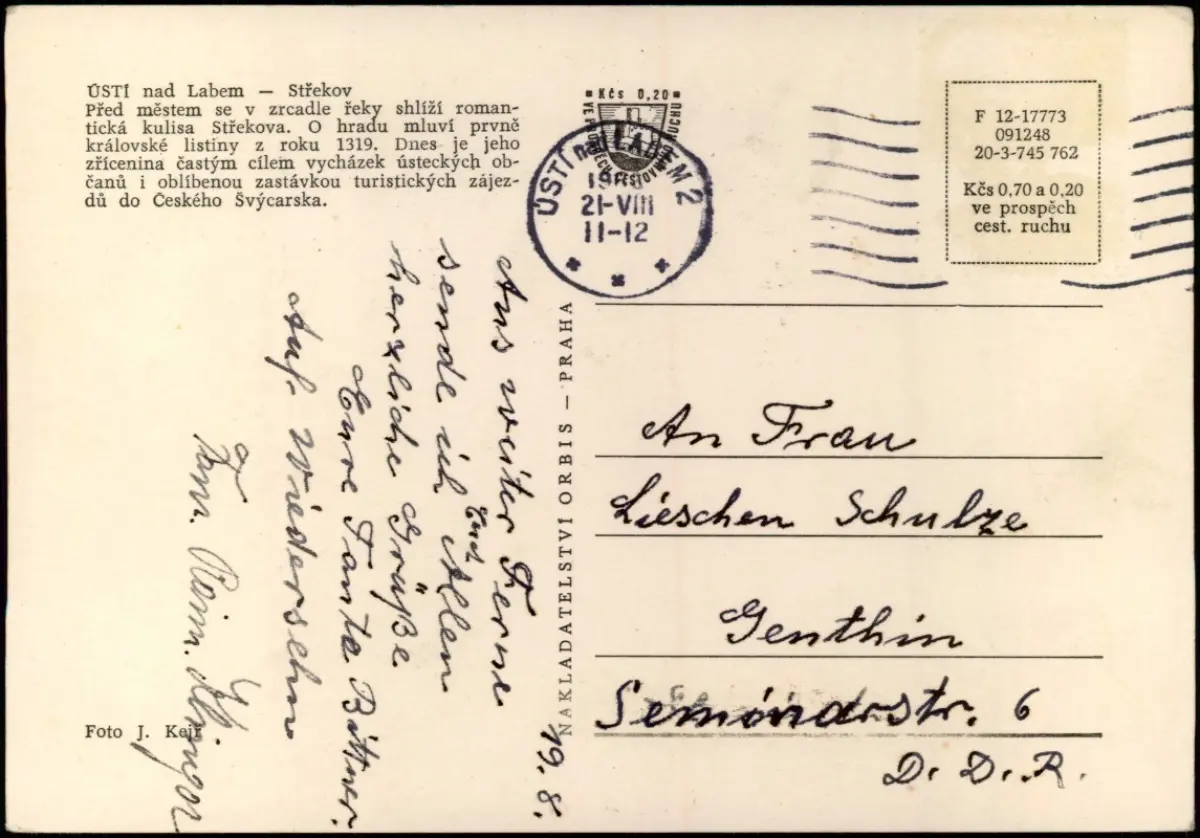 ÚSTÍ nad Labem — Střekov
Před městem se v zrcadle řeky shlíží roman-
tická kulisa Střekova. O hradu mluví prvně
královské listiny z roku 1319. Dnes je jeho
zřícenina častým cílem vycházek ústeckých ob-
čanů i oblíbenou zastávkou turistických zájez-
dů do Českého Švýcarska.
Kčs 0,20
ÚSTÍ nad LABEM 2
21-VIII
11-12
F 12-17773
091248
20-3-745 762
Kčs 0,70 a 0,20
ve prospěch
cest. ruchu
19. 8.
Aus weiter Ferne
sende ich Euch Allen
herzliche Grüße
Eure Tante Bittner.
Auf Wiedersehn
Fam.
NAKLADATELSTVÍ ORBIS — PRAHA
An Frau
Lieschen Schulze
Genthin
6
D. D. R.
Foto J. Kejř